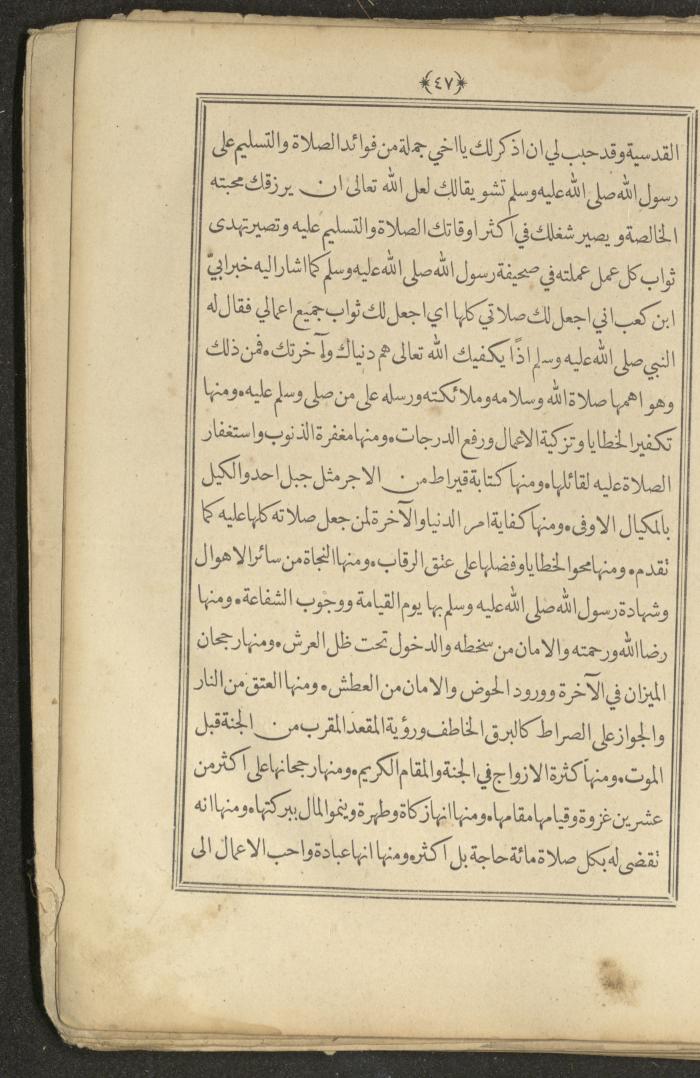 ﴿٤٧﴾
القدسية وقد حبب لي ان اذكر لك يا اخي جملة من فوائد الصلاة والتسليم على
رسول الله صلى الله عليه وسلم تشويقا لك لعل الله تعالى ان يرزقك محبته
الخالصة و يصير شغلك في اكثر اوقاتك الصلاة والتسليم عليه وتصير تهدى
ثواب كل عمل عملته في صحيفة رسول الله صلى الله عليه وسلم كما اشار اليه خبر ابيّ
ابن كعب اني اجعل لك صلاتي كلها اي اجعل لك ثواب جميع اعمالي فقال له
النبي صلى الله عليه وسلم اذًا يكفيك الله تعالى هم دنياك وآخرتك • فمن ذلك
وهو اهمها صلاة الله وسلامه وملائكته ورسله على من صلى وسلم عليه • ومنها
تكفير الخطايا وتزكية الاعمال ورفع الدرجات • ومنها مغفرة الذنوب واستغفار
الصلاة عليه لقائلها • ومنها كتابة قيراط من الاجر مثل جبل احد والكيل
بالمكيال الاوفى • ومنها كفاية امر الدنيا والآخرة لمن جعل صلاته كلها عليه كما
تقدم • ومنها محو الخطايا وفضلها على عتق الرقاب • ومنها النجاة من سائر الاهوال
وشهادة رسول الله صلى الله عليه وسلم بها يوم القيامة ووجوب الشفاعة • ومنها
رضا الله ورحمته والامان من سخطه والدخول تحت ظل العرش • ومنها رجحان
الميزان في الآخرة وورود الحوض والامان من العطش • ومنها العتق من النار
والجواز على الصراط كالبرق الخاطف ورؤية المقعد المقرب من الجنة قبل
الموت • ومنها كثرة الازواج في الجنة والمقام الكريم • ومنها رجحانها على اكثر من
عشرين غزوة وقيامها مقامها • ومنها انها زكاة وطهرة وينمو المال ببركتها • ومنها انه
تقضى له بكل صلاة مائة حاجة بل اكثر • ومنها انها عبادة واحب الاعمال الى